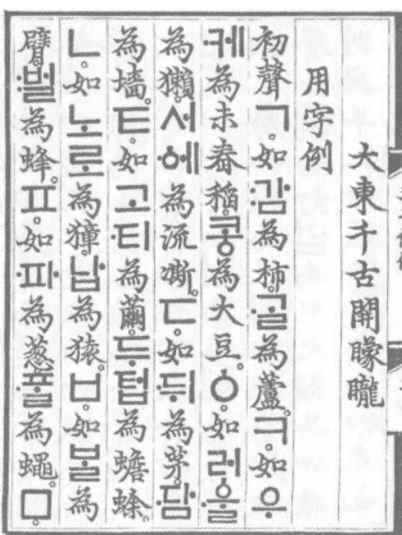 大東千古開矇矓
用字例
初聲ㄱ。如감為柿。ᄀᆞᆯ為蘆。ㅋ。如우
케為未舂稻。콩為大豆。ㆁ。如러ᅌᅮᆯ
為獺。서ᅌᅦ為流凘。ㄷ。如뒤為茅。담
為墻。ㅌ。如고티為繭。두텁為蟾蜍。
ㄴ。如노로為獐。납為猿。ㅂ。如ᄇᆞᆯ為
臂。벌為蜂。ㅍ。如파為葱。ᄑᆞᆯ為蠅。ㅁ。